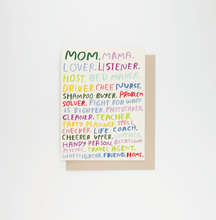 MOM. MAMA.
LOVER. LISTENER.
HOST. BED MAKER.
DRIVER. CHEF. NURSE.
SHAMPOO BUYER. PROBLEM
SOLVER. FIGHT FOR WHAT
IS RIGHTER. PHOTOGRAPHER.
CLEANER. TEACHER.
PARTY PLANNER. SPELL
CHECKER. LIFE COACH.
CHEERER UPPER.
HANDY PERSON. OCCASIONAL
PSYCHIC. TRAVEL AGENT.
INVESTIGATOR. FRIEND. HOME.